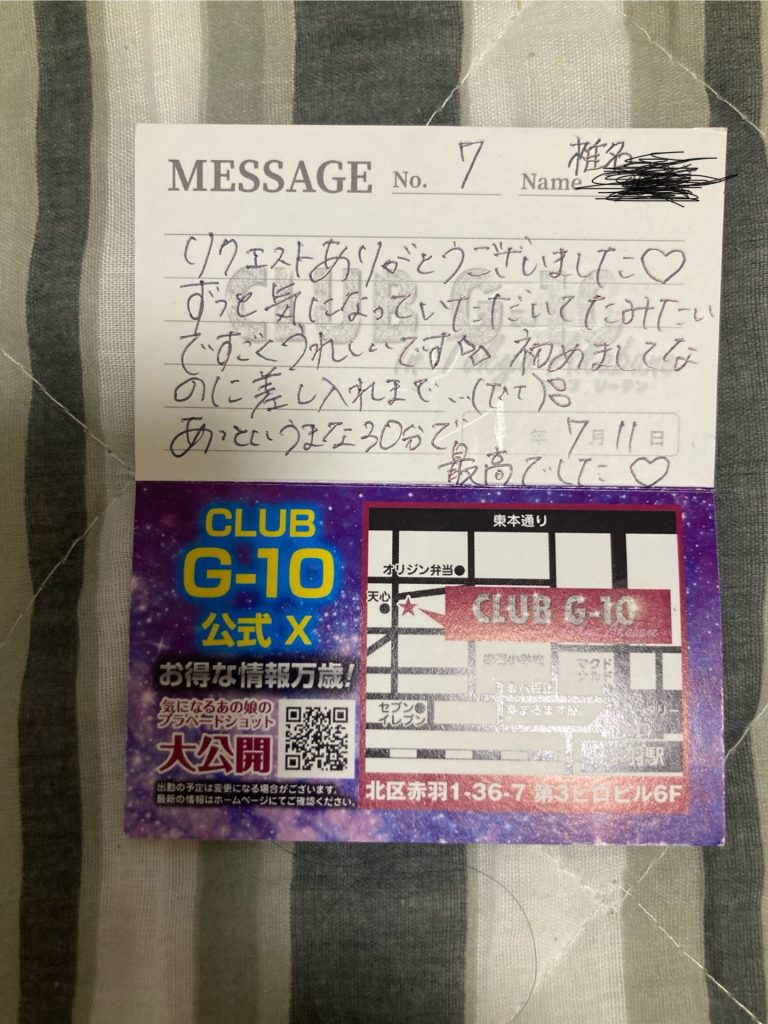 MESSAGE No. 7 Name 椎名
リクエストありがとうございました♡
ずっと気になっていただいてたみたい
ですごくうれしいです♡♡ 初めましてな
のに差し入れまで…(T^T)
あっというまな30分で
年 7月 11日
最高でした ♡
CLUB
G-10
公式 X
お得な情報万歳!
気になるあの娘の
プラベードショット
大公開
出勤の予定は変更になる場合がございます。
最新の情報はホームページにてご確認ください。
東本通り
オリジン弁当
天心
CLUB G-10
マクド
ナルド
セブン
イレブン
北区赤羽1-36-7 第3ヒロビル6F